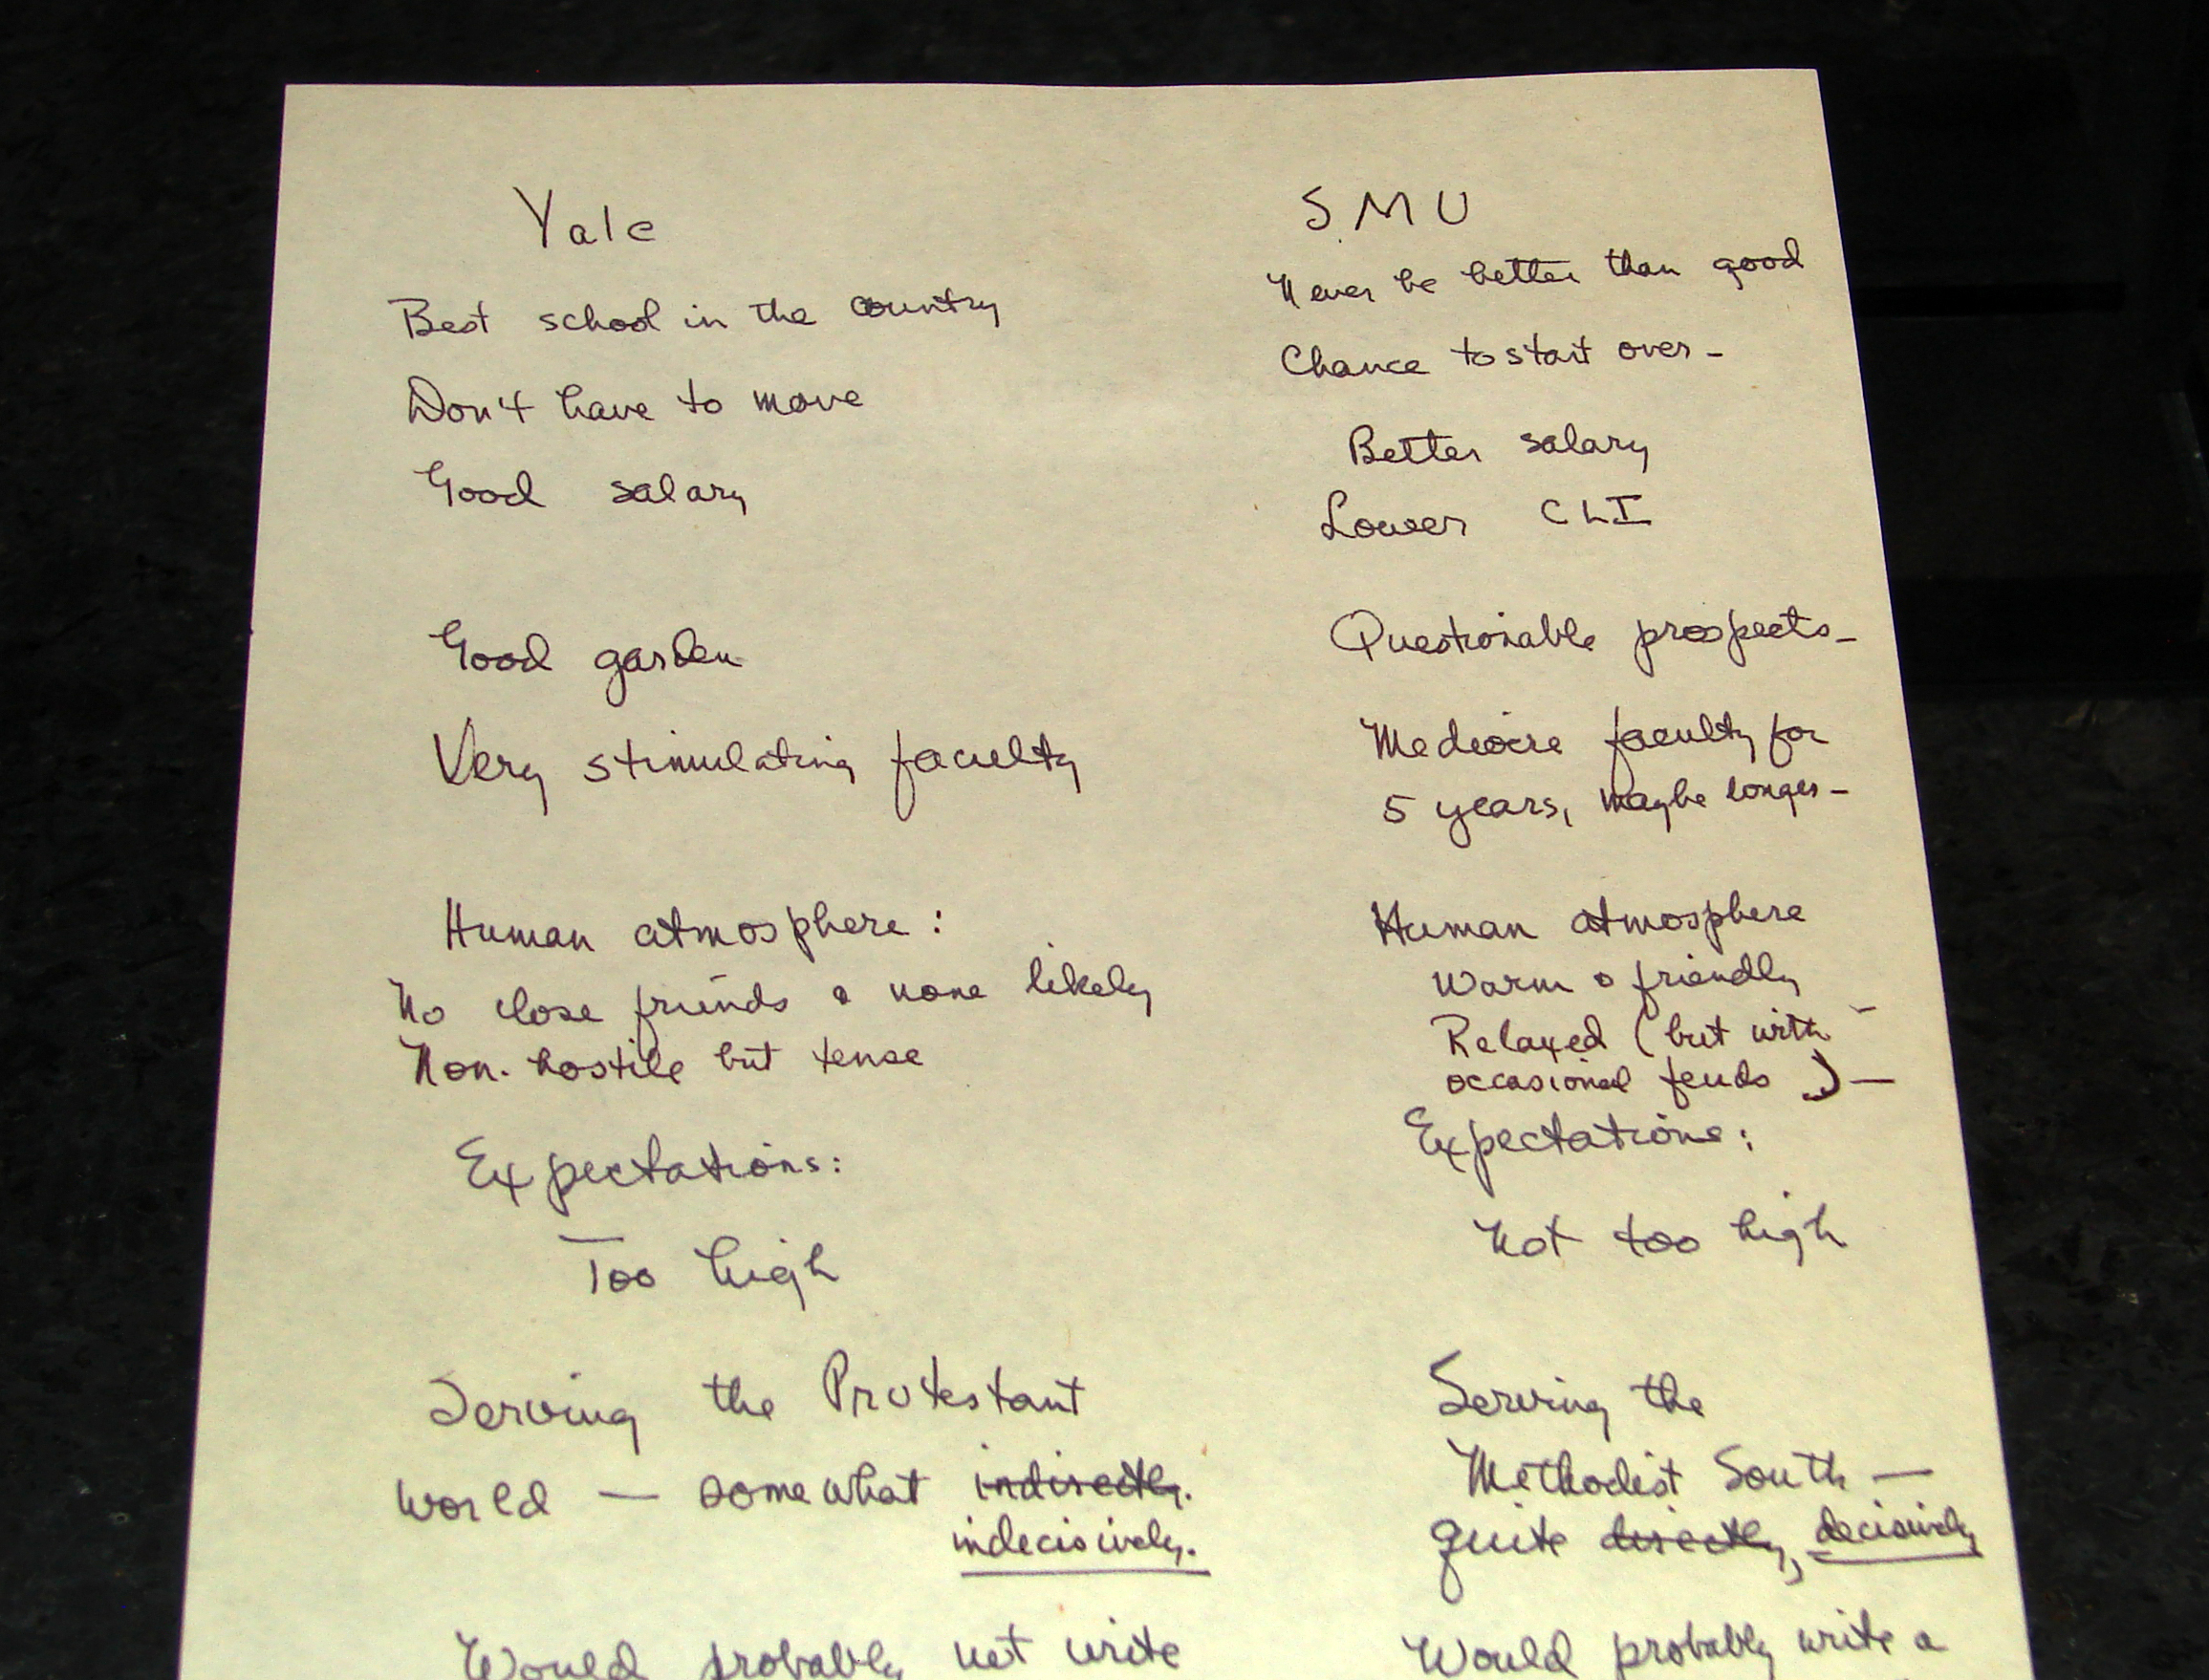 Yale
Best school in the country
Don't have to move
Good salary
Good garden
Very stimulating faculty
Human atmosphere:
No close friends & none likely
Non-hostile but tense
Expectations:
Too high
Serving the Protestant
world — somewhat indirectly.
indecisively.
Would probably not write
S.M U
Never be better than good
Chance to start over –
Better salary
Lower CLI
Questionable prospects –
Mediocre faculty for
5 years, maybe longer –
Human atmosphere
Warm & friendly –
Relaxed (but with
occasional feuds) —
Expectations:
Not too high
Serving the
Methodist South —
quite directly, decisively
Would probably write a